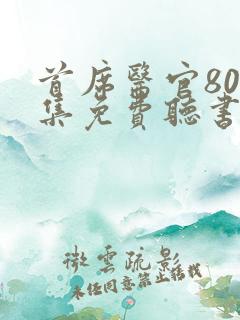 首席醫官80
集免費聽書
微雲疏影
未经同意禁止转载